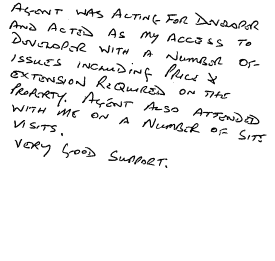 AGENT WAS ACTING FOR DEVELOPER
AND ACTED AS MY ACCESS TO
DEVELOPER WITH A NUMBER OF
ISSUES INCLUDING PRICE &
EXTENSION REQUIRED ON THE
PROPERTY. AGENT ALSO ATTENDED
WITH ME ON A NUMBER OF SITE
VISITS.
VERY GOOD SUPPORT.